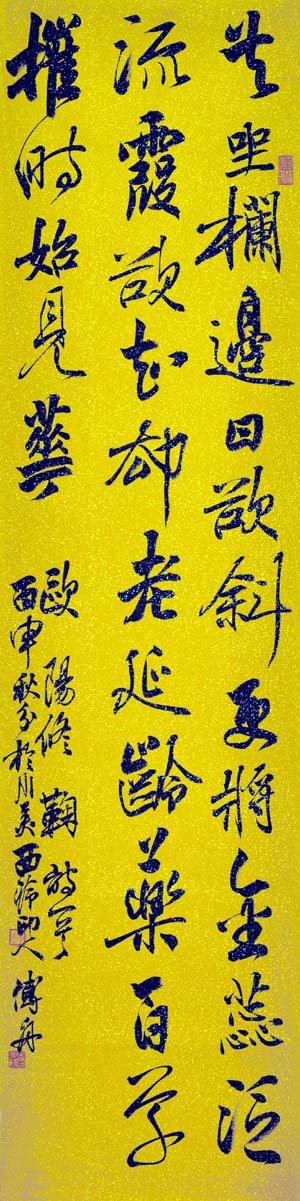 共坐欄邊日欲斜更將金蕊泛
流霞欲知却老延齡藥百草
摧時始見華
歐陽修鞠詩一首
丙申秋分於川美西 傅舟